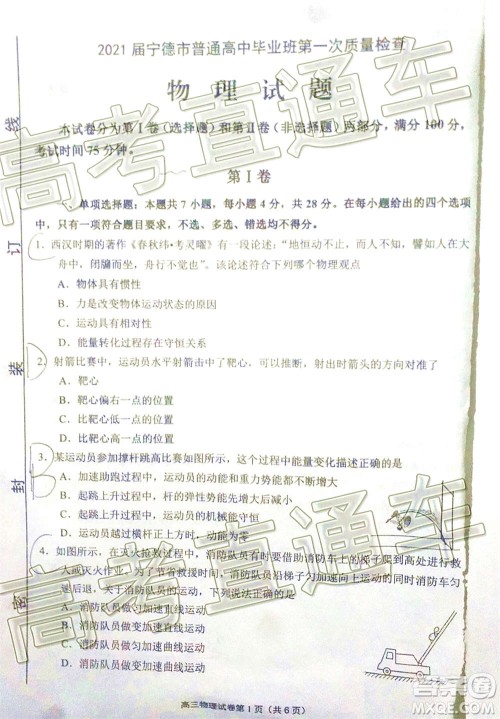 2021 届宁德市普通高中毕业班第一次质量检查
物 理 试 题
本试卷分为第Ⅰ卷（选择题）和第Ⅱ卷（非选择题）两部分，满分 100 分，
考试时间 75 分钟。
第Ⅰ卷
单项选择题：本题共 7 小题，每小题 4 分，共 28 分。在每小题给出的四个选项
中，只有一项符合题目要求，不选、多选、错选均不得分。
1. 西汉时期的著作《春秋纬·考灵曜》有一段论述：“地恒动不止，而人不知，譬如人在大
舟中，闭牖而坐，舟行不觉也”。该论述符合下列哪个物理观点
A．物体具有惯性
B．力是改变物体运动状态的原因
C．运动具有相对性
D．能量转化过程存在守恒关系
2. 射箭比赛中，运动员水平射箭击中了靶心，可以推断，射出时箭头的方向对准了
A．靶心
B．比靶心偏右一点的位置
C．比靶心低一点的位置
D．比靶心高一点的位置
3. 某运动员参加撑杆跳高比赛如图所示，这个过程中能量变化描述正确的是
A．加速助跑过程中，运动员的动能和重力势能都不断增大
B．起跳上升过程中，
C．起跳上升过程中，运动员的机械能守恒
D．运动员越过横杆正上方时，动能
4. 如图所示，在火灾抢救过程中，消防队员有时要借助消防车上的梯子爬到高处进行救
人或灭火作业。为了节省救援时间，消防队员沿梯子匀加速向上运动的同时消防车匀
速后退，关于消防队员的运动，下列说法正确的是
A．消防队员做匀加速直线运动
B．消防队员做匀变速曲线运动
C．消防队员做变加速曲线运动
D．消防队员做变加速直线运动
高三物理试卷第 1 页（共 6 页）
线
订
装
封
密
高考直通车
高考直通车
高考直通车
作业帮